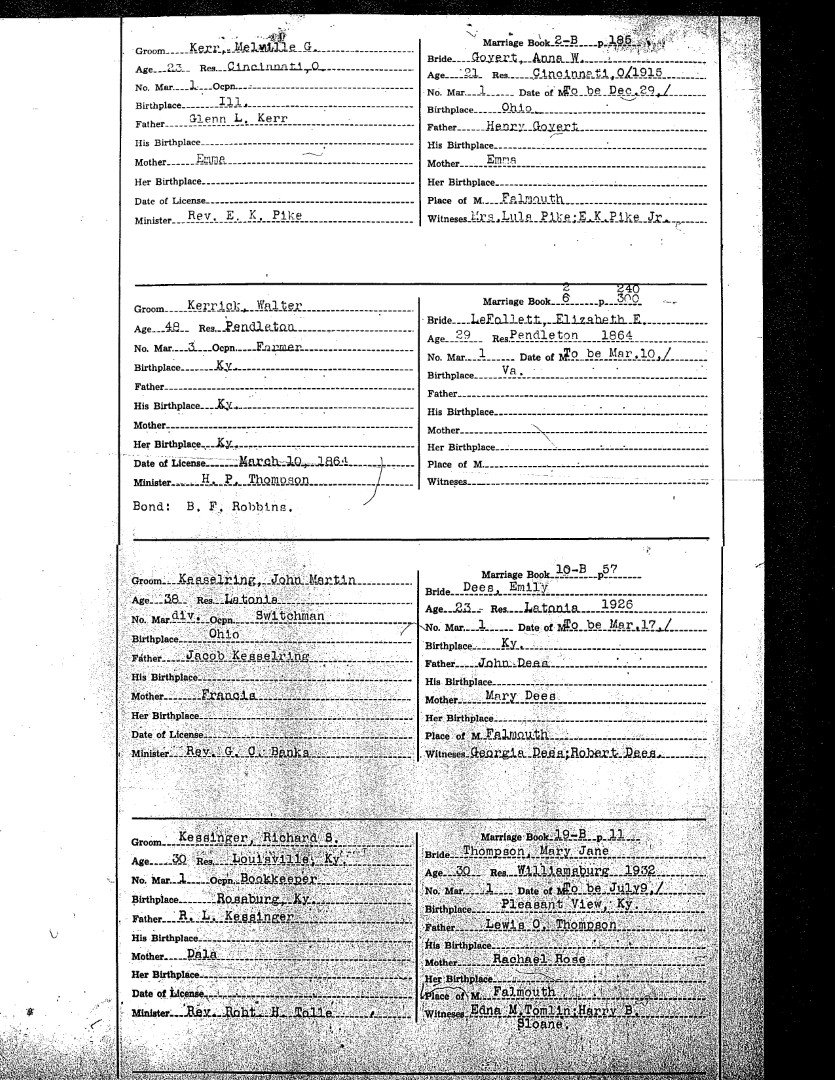 Groom Kerr, Melville G.
Age 23 Res. Cincinnati,O
No. Mar. 1 Ocpn.
Birthplace Ill.
Father Glenn L. Kerr
His Birthplace
Mother Emma
Her Birthplace
Date of License
Minister Rev. E. K. Pike
Marriage Book 2-B p. 185
Bride Govert, Anna W.
Age 21 Res. Cincinnati,O/1915
No. Mar. 1 Date of M To be Dec.29,/
Birthplace Ohio
Father Henry Govert
His Birthplace
Mother Emma
Her Birthplace
Place of M. Falmouth
Witnesses Mrs.Lula Pike;E.K.Pike Jr.
Groom Kerrick, Walter
Age 48 Res. Pendleton
No. Mar. 3 Ocpn. Farmer
Birthplace Ky.
Father
His Birthplace Ky.
Mother
Her Birthplace Ky.
Date of License March 10, 1864
Minister H. P. Thompson
Bond: B. F. Robbins.
2 240
Marriage Book 6 p. 300
Bride LeFollett, Elizabeth E.
Age 29 Res Pendleton 1864
No. Mar. 1 Date of M To be Mar.10,/
Birthplace Va.
Father
His Birthplace
Mother
Her Birthplace
Place of M.
Witnesses
Groom Kesselring, John Martin
Age 38 Res. Latonia
No. Mar div. Ocpn. Switchman
Birthplace Ohio
Father Jacob Kesselring
His Birthplace
Mother Francis
Her Birthplace
Date of License
Minister Rev. G. C. Banks
Marriage Book 10-B p 57
Bride Dees, Emily
Age 23 Res. Latonia 1926
No. Mar. 1 Date of M To be Mar.17,/
Birthplace Ky.
Father John Dees
His Birthplace
Mother Mary Dees
Her Birthplace
Place of M. Falmouth
Witnesses Georgia Dees;Robert Dees.
Groom Kessinger, Richard S.
Age 30 Res. Louisville, Ky.
No. Mar. 1 Ocpn. Bookkeeper
Birthplace Rosaburg, Ky.
Father R. L. Kessinger
His Birthplace
Mother Dala
Her Birthplace
Date of License
Minister Rev. Robt H. Tolle
Marriage Book 19-B p. 11
Bride Thompson, Mary Jane
Age 30 Res. Williamsburg 1932
No. Mar. 1 Date of M To be July9,/
Birthplace Pleasant View, Ky.
Father Lewis O. Thompson
His Birthplace
Mother Rachael Rose
Her Birthplace
Place of M. Falmouth
Witnesses Edna M.Tomlin;Harry B.
Sloane.